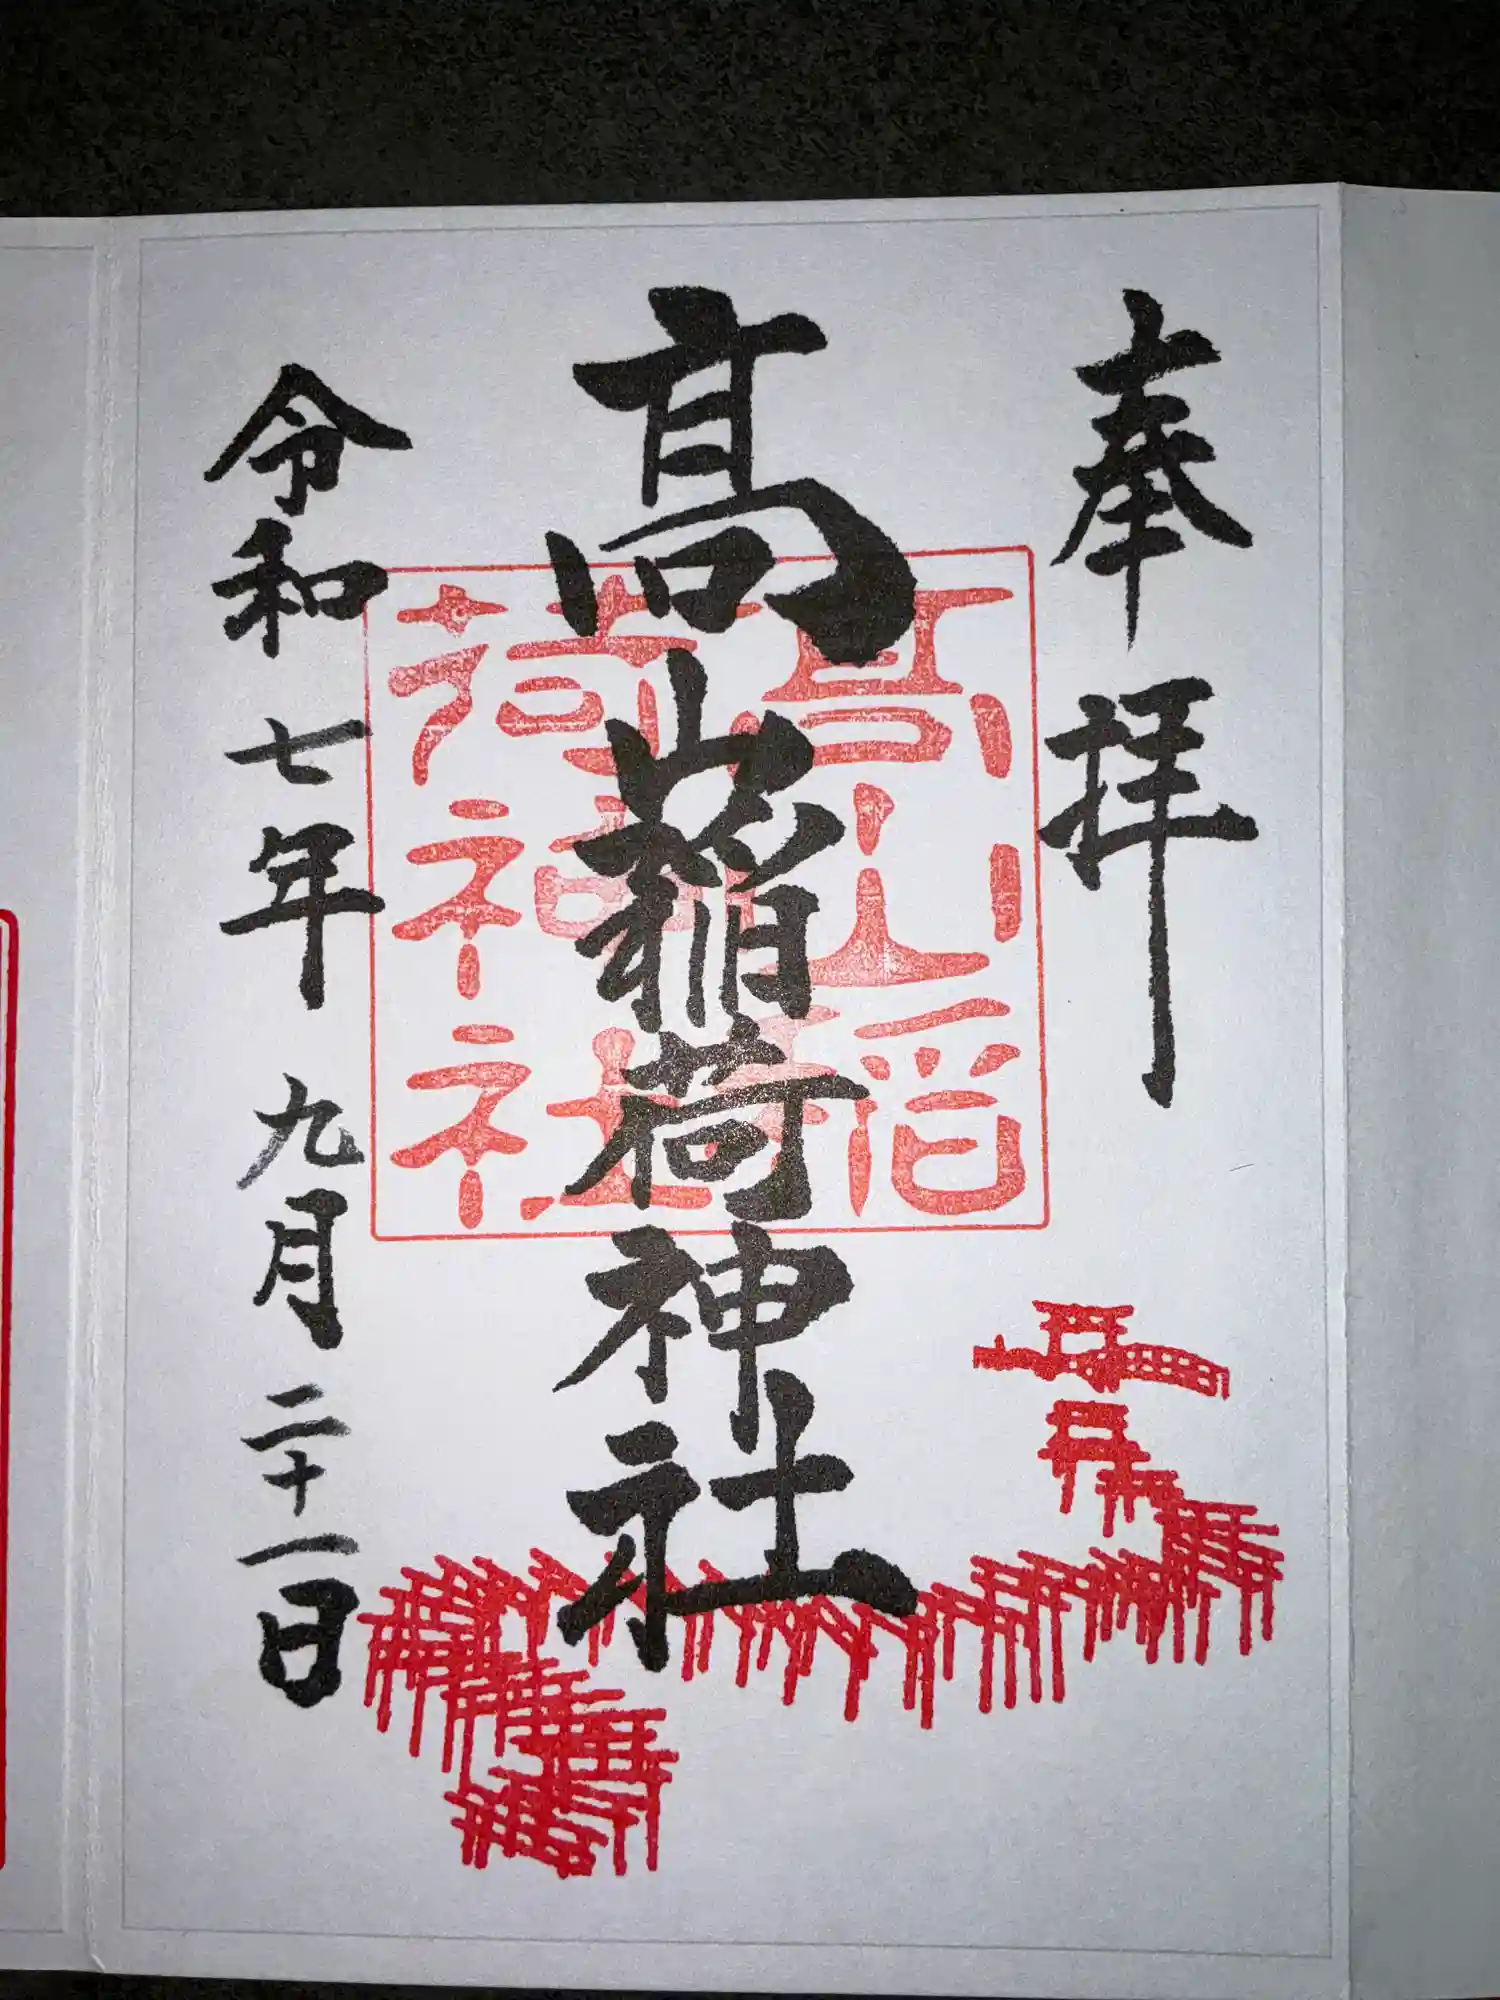 奉拝
髙山稲荷神社
令和七年九月二十一日
高山稲
荷神社